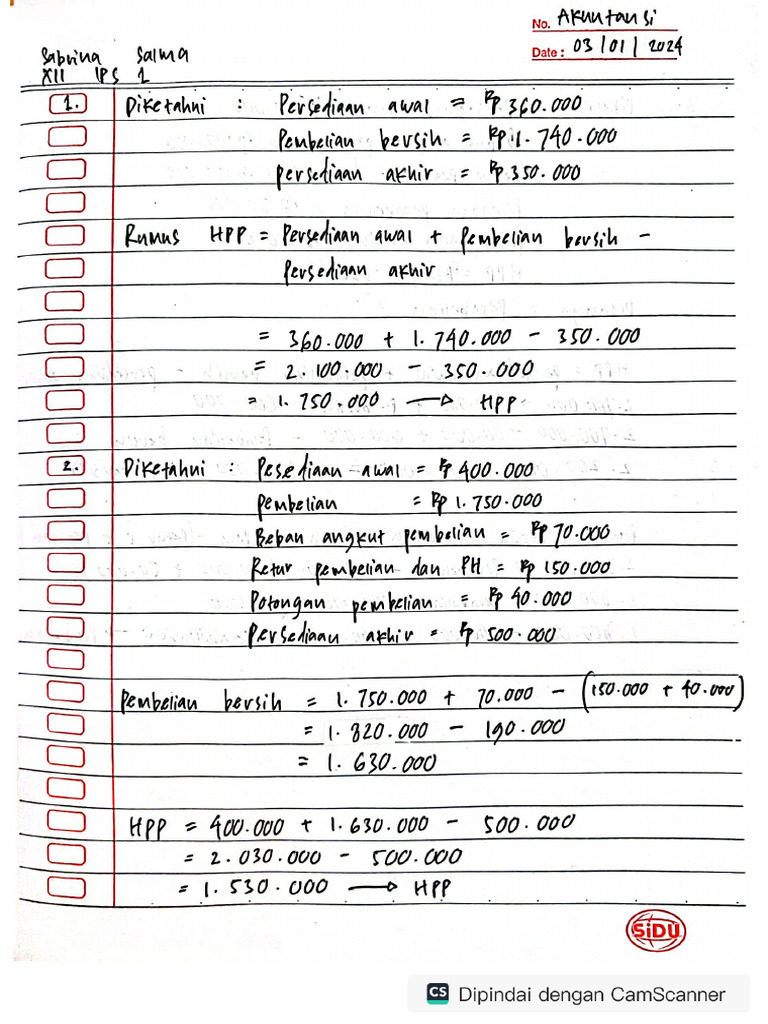 No. Akuntansi
Date : 03 / 01 / 2024
Sabrina Salma
XII IPS 1
1. Diketahui : Persediaan awal = Rp 360.000
Pembelian bersih = Rp 1.740.000
persediaan akhir = Rp 350.000
Rumus HPP = Persediaan awal + pembelian bersih -
Persediaan akhir
= 360.000 + 1.740.000 - 350.000
= 2.100.000 - 350.000
= 1.750.000 → HPP
2. Diketahui : Pesediaan awal = Rp 400.000
pembelian = Rp 1.750.000
Beban angkut pembelian = Rp 70.000
Retur pembelian dan PH = Rp 150.000
Potongan pembelian = Rp 40.000
Persediaan akhir = Rp 500.000
Pembelian bersih = 1.750.000 + 70.000 - (150.000 + 40.000)
= 1.820.000 - 190.000
= 1.630.000
HPP = 400.000 + 1.630.000 - 500.000
= 2.030.000 - 500.000
= 1.530.000 → HPP
SiDU
CS Dipindai dengan CamScanner